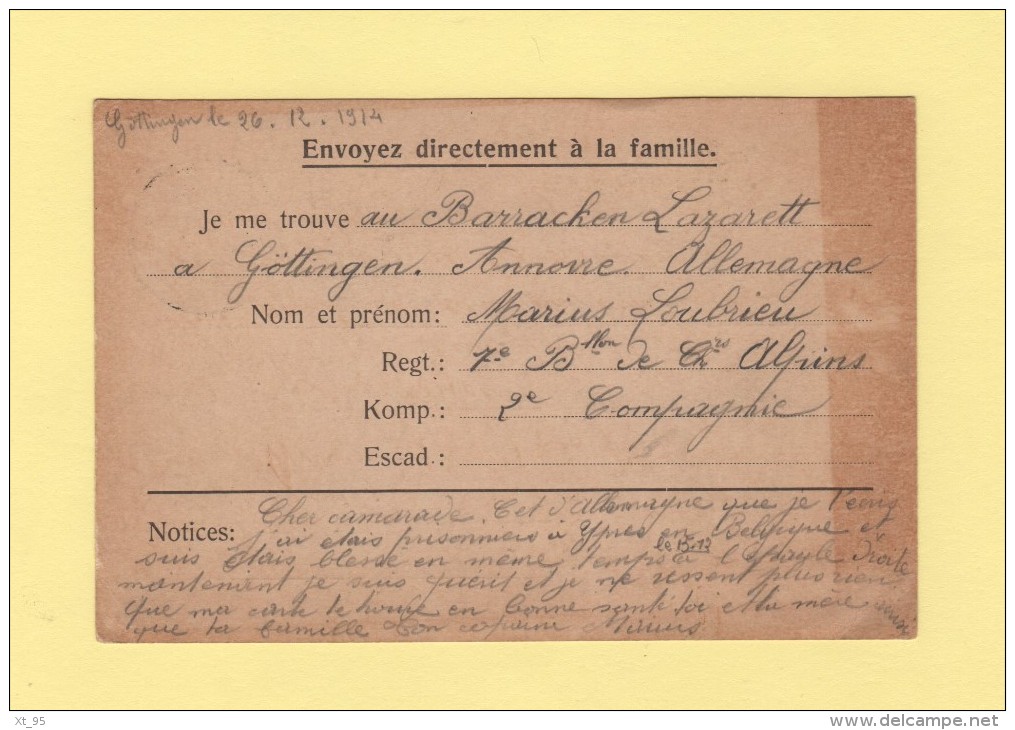 Göttingen le 26.12.1914
Envoyez directement à la famille.
Je me trouve au Barracken Lazarett
a Göttingen. Annovre. Allemagne
Nom et prénom: Marius Loubrieu
Regt.: 7e Bllon de Chrs Alpins
Komp.: 2e Compagnie
Escad.:
Notices: Cher camarade. Cet d'Allemagne que je t'ecris
j'ai etais prisonniers a Ypres en Belgique et
suis etais blesse en même temps le 15.12 a l'epayle droite
maintenient je suis guérit et je ne ressent plus rien
que ma carte te trouve en bonne santé toi et ta mère ainsi
que ta famille ton copain Marius
Xt_95
delcampe.net